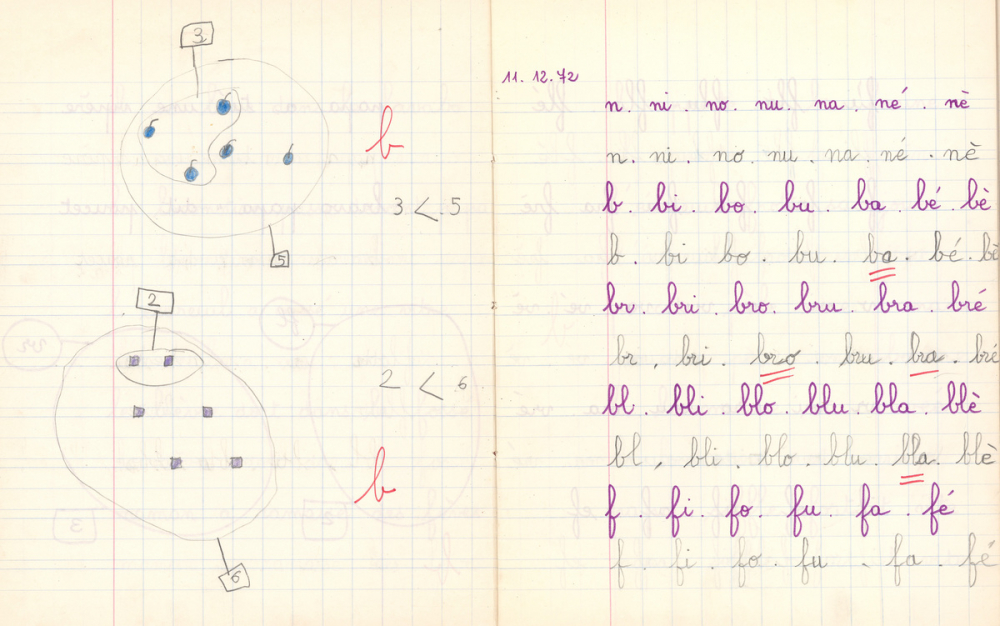 3
b
3 < 5
5
2
2 < 6
b
6
11. 12. 72
n. ni. no. nu. na. né. nè
n. ni. no. nu. na. né. nè
b. bi. bo. bu. ba. bé. bè
b. bi. bo. bu. ba. bé. bè
br. bri. bro. bru. bra. bré
br, bri. bro. bru. bra. bré
bl. bli. blo. blu. bla. blè
bl, bli. blo. blu. bla. blè
f. fi. fo. fu. fa. fé
f. fi. fo. fu. fa. fé